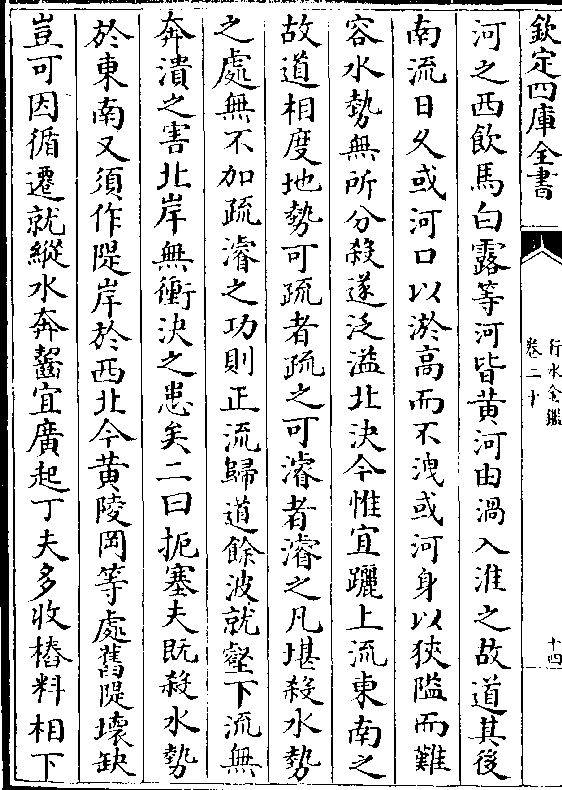 欽定四庫全書
行水金鑑
卷二十
十四
河之西飲馬白露等河皆黄河由渦入淮之故道其後
南流日久或河口以淤高而不洩或河身以狹隘而難
容水勢無所分殺遂泛溢北決今惟宜躧上流東南之
故道相度地勢可疏者疏之可濬者濬之凡堪殺水勢
之處無不加疏濬之功則正流歸道餘波就壑下流無
奔潰之害北岸無衝決之患矣二曰扼塞夫既殺水勢
於東南又須作隄岸於西北今黄陵岡等處舊隄壊缺
豈可因循遷就縱水奔齧宜廣起丁夫多收樁料相下